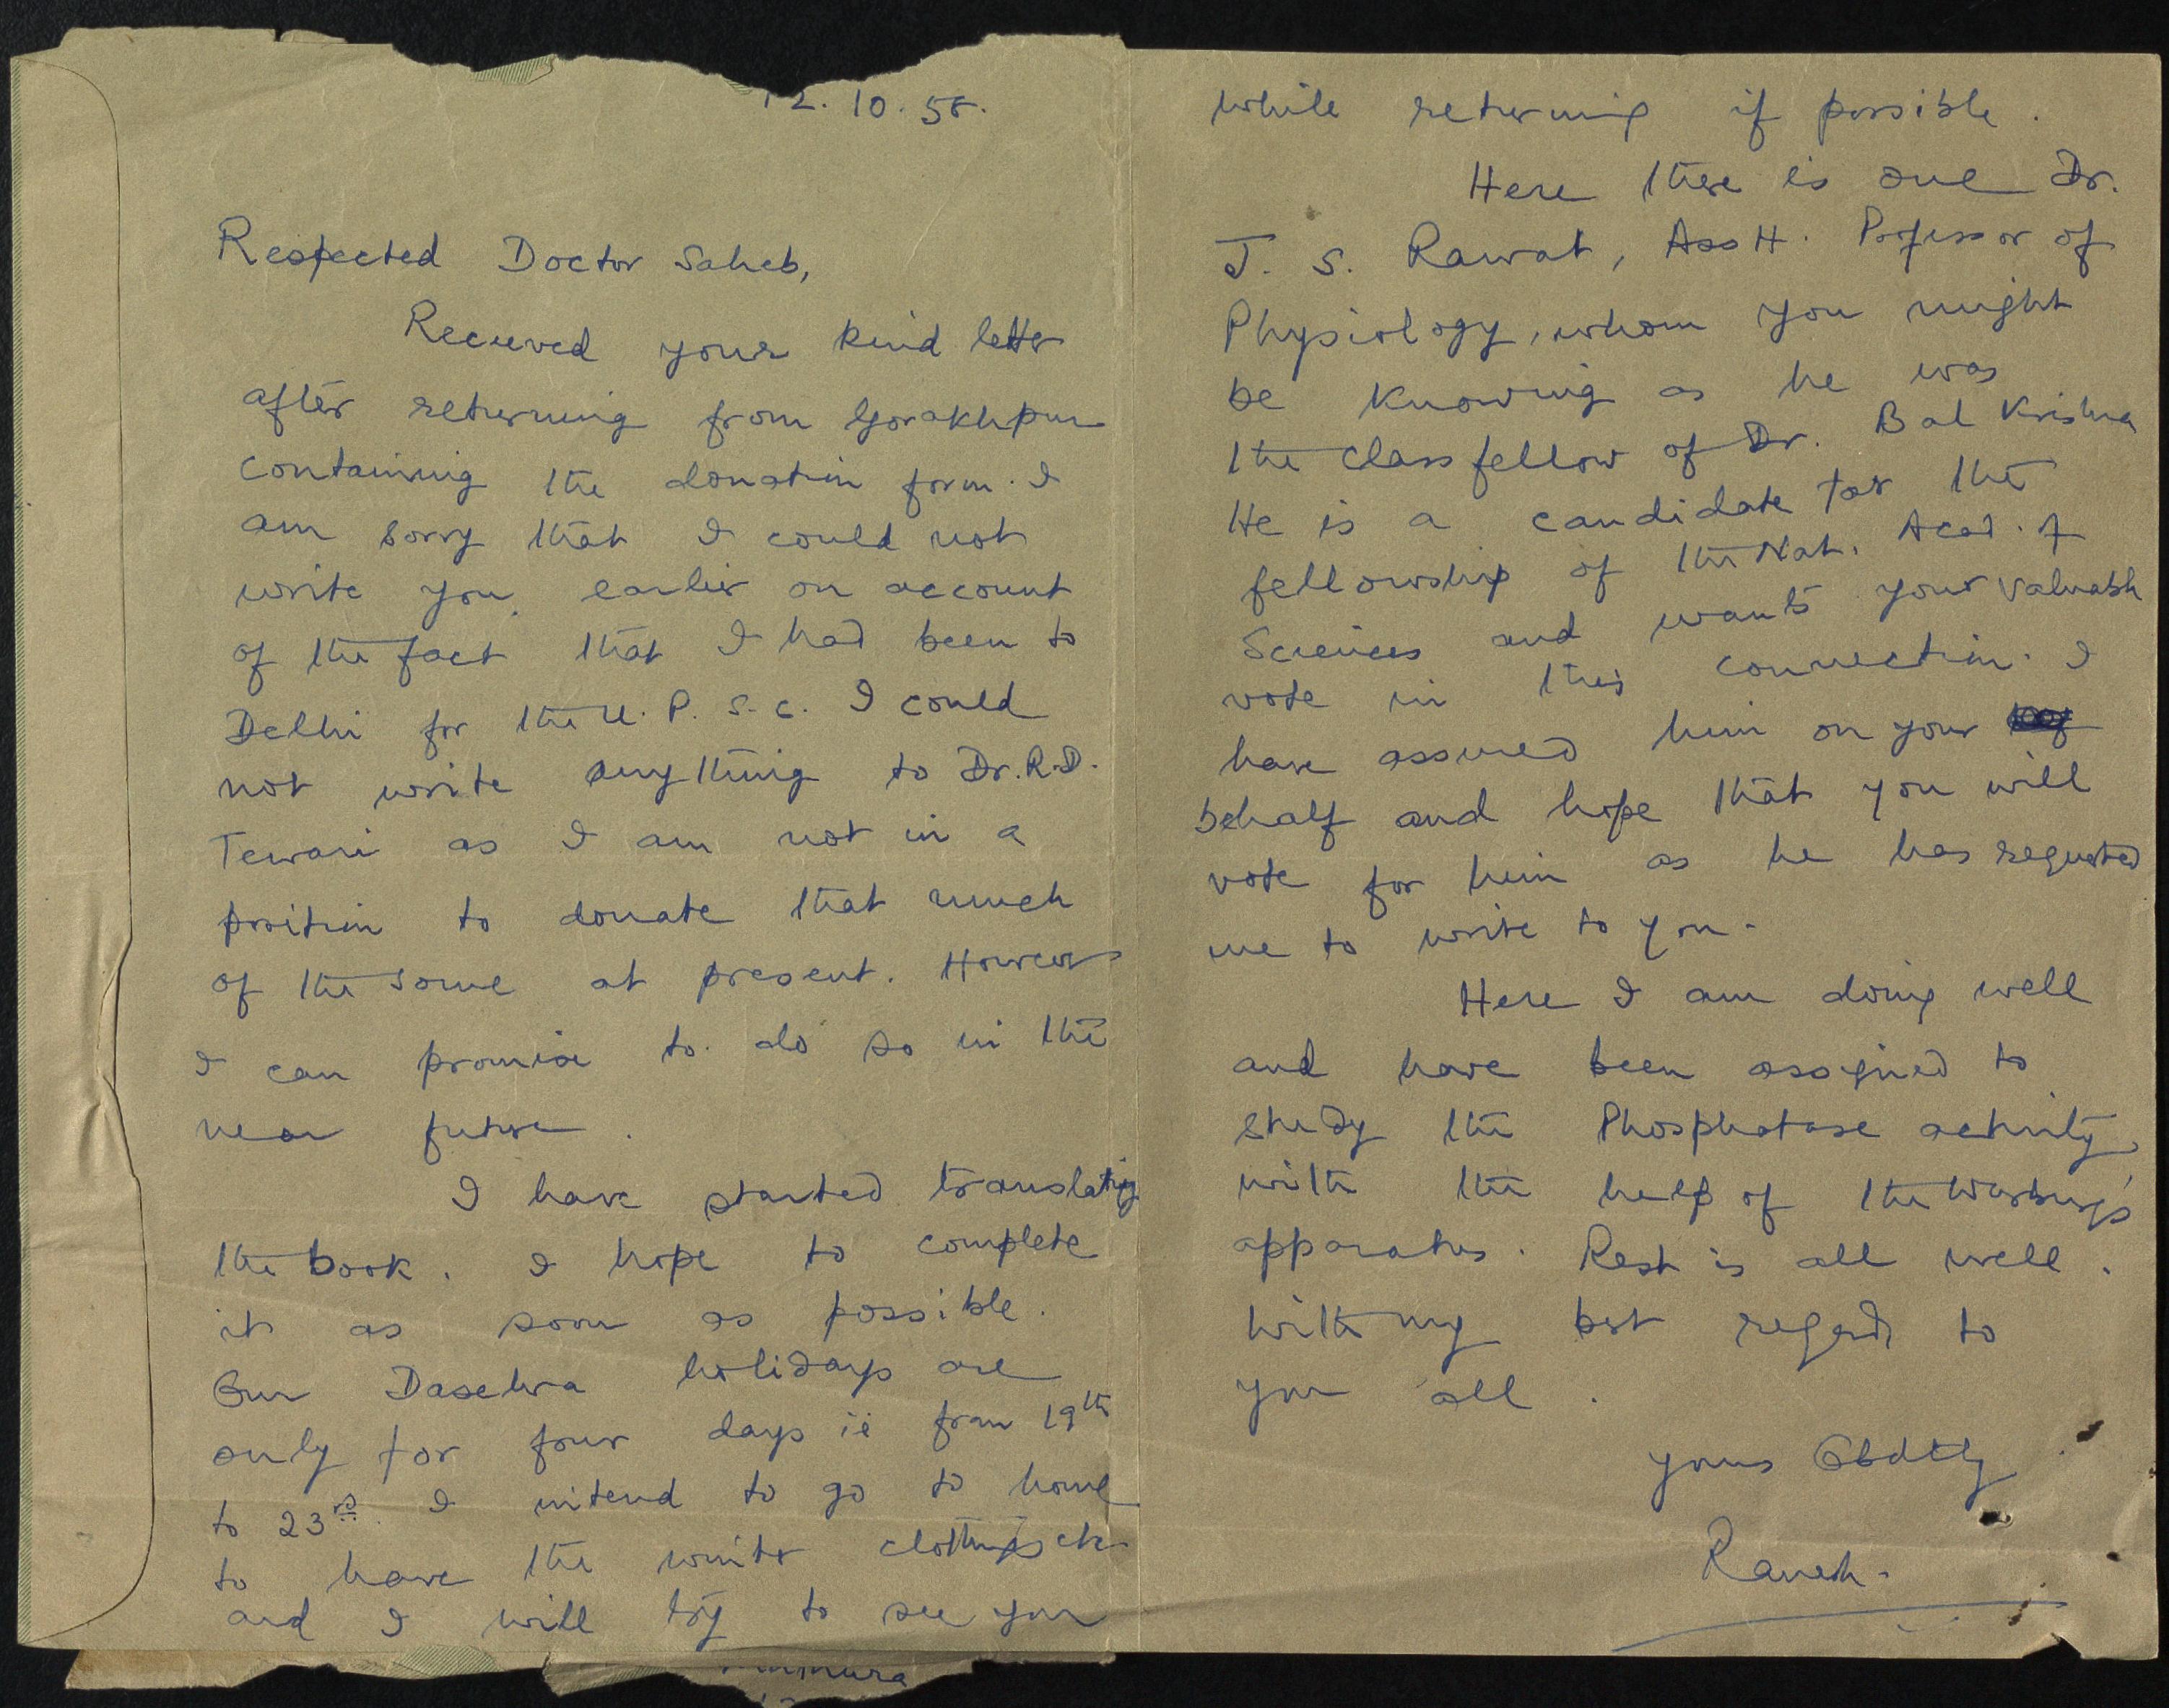 12. 10. 58.
Respected Doctor Saheb,
Recieved your kind letter
after returning from Gorakhpur
containing the donation form. I
am sorry that I could not
write you earlier on account
of the fact that I had been to
Delhi for the U. P. S. C. I could
not write anything to Dr. R.D.
Tewari as I am not in a
position to donate that much
of the some at present. However
I can promise to do so in the
near future.
I have started translating
the book. I hope to complete
it as soon as possible.
Our Dasehra holidays are
only for four days ie from 19th
to 23rd. I intend to go to home
to have the winter clothings etc
and I will try to see you
while returning if possible.
Here there is one Dr.
J. S. Rawat, Asstt. Professor of
Physiology, whom you might
be knowing as he was
the class fellow of Dr. Bal Krishna
He is a candidate for the
fellowship of the Nat. Acad. of
Sciences and wants your valuable
vote in this connection. I
have assured him on your
behalf and hope that you will
vote for him as he has requested
me to write to you.
Here I am doing well
and have been assigned to
study the Phosphatase activity
with the help of the Warburg's
apparatus. Rest is all well.
With my best regards to
you all.
Yours Obdtly
Ramesh.